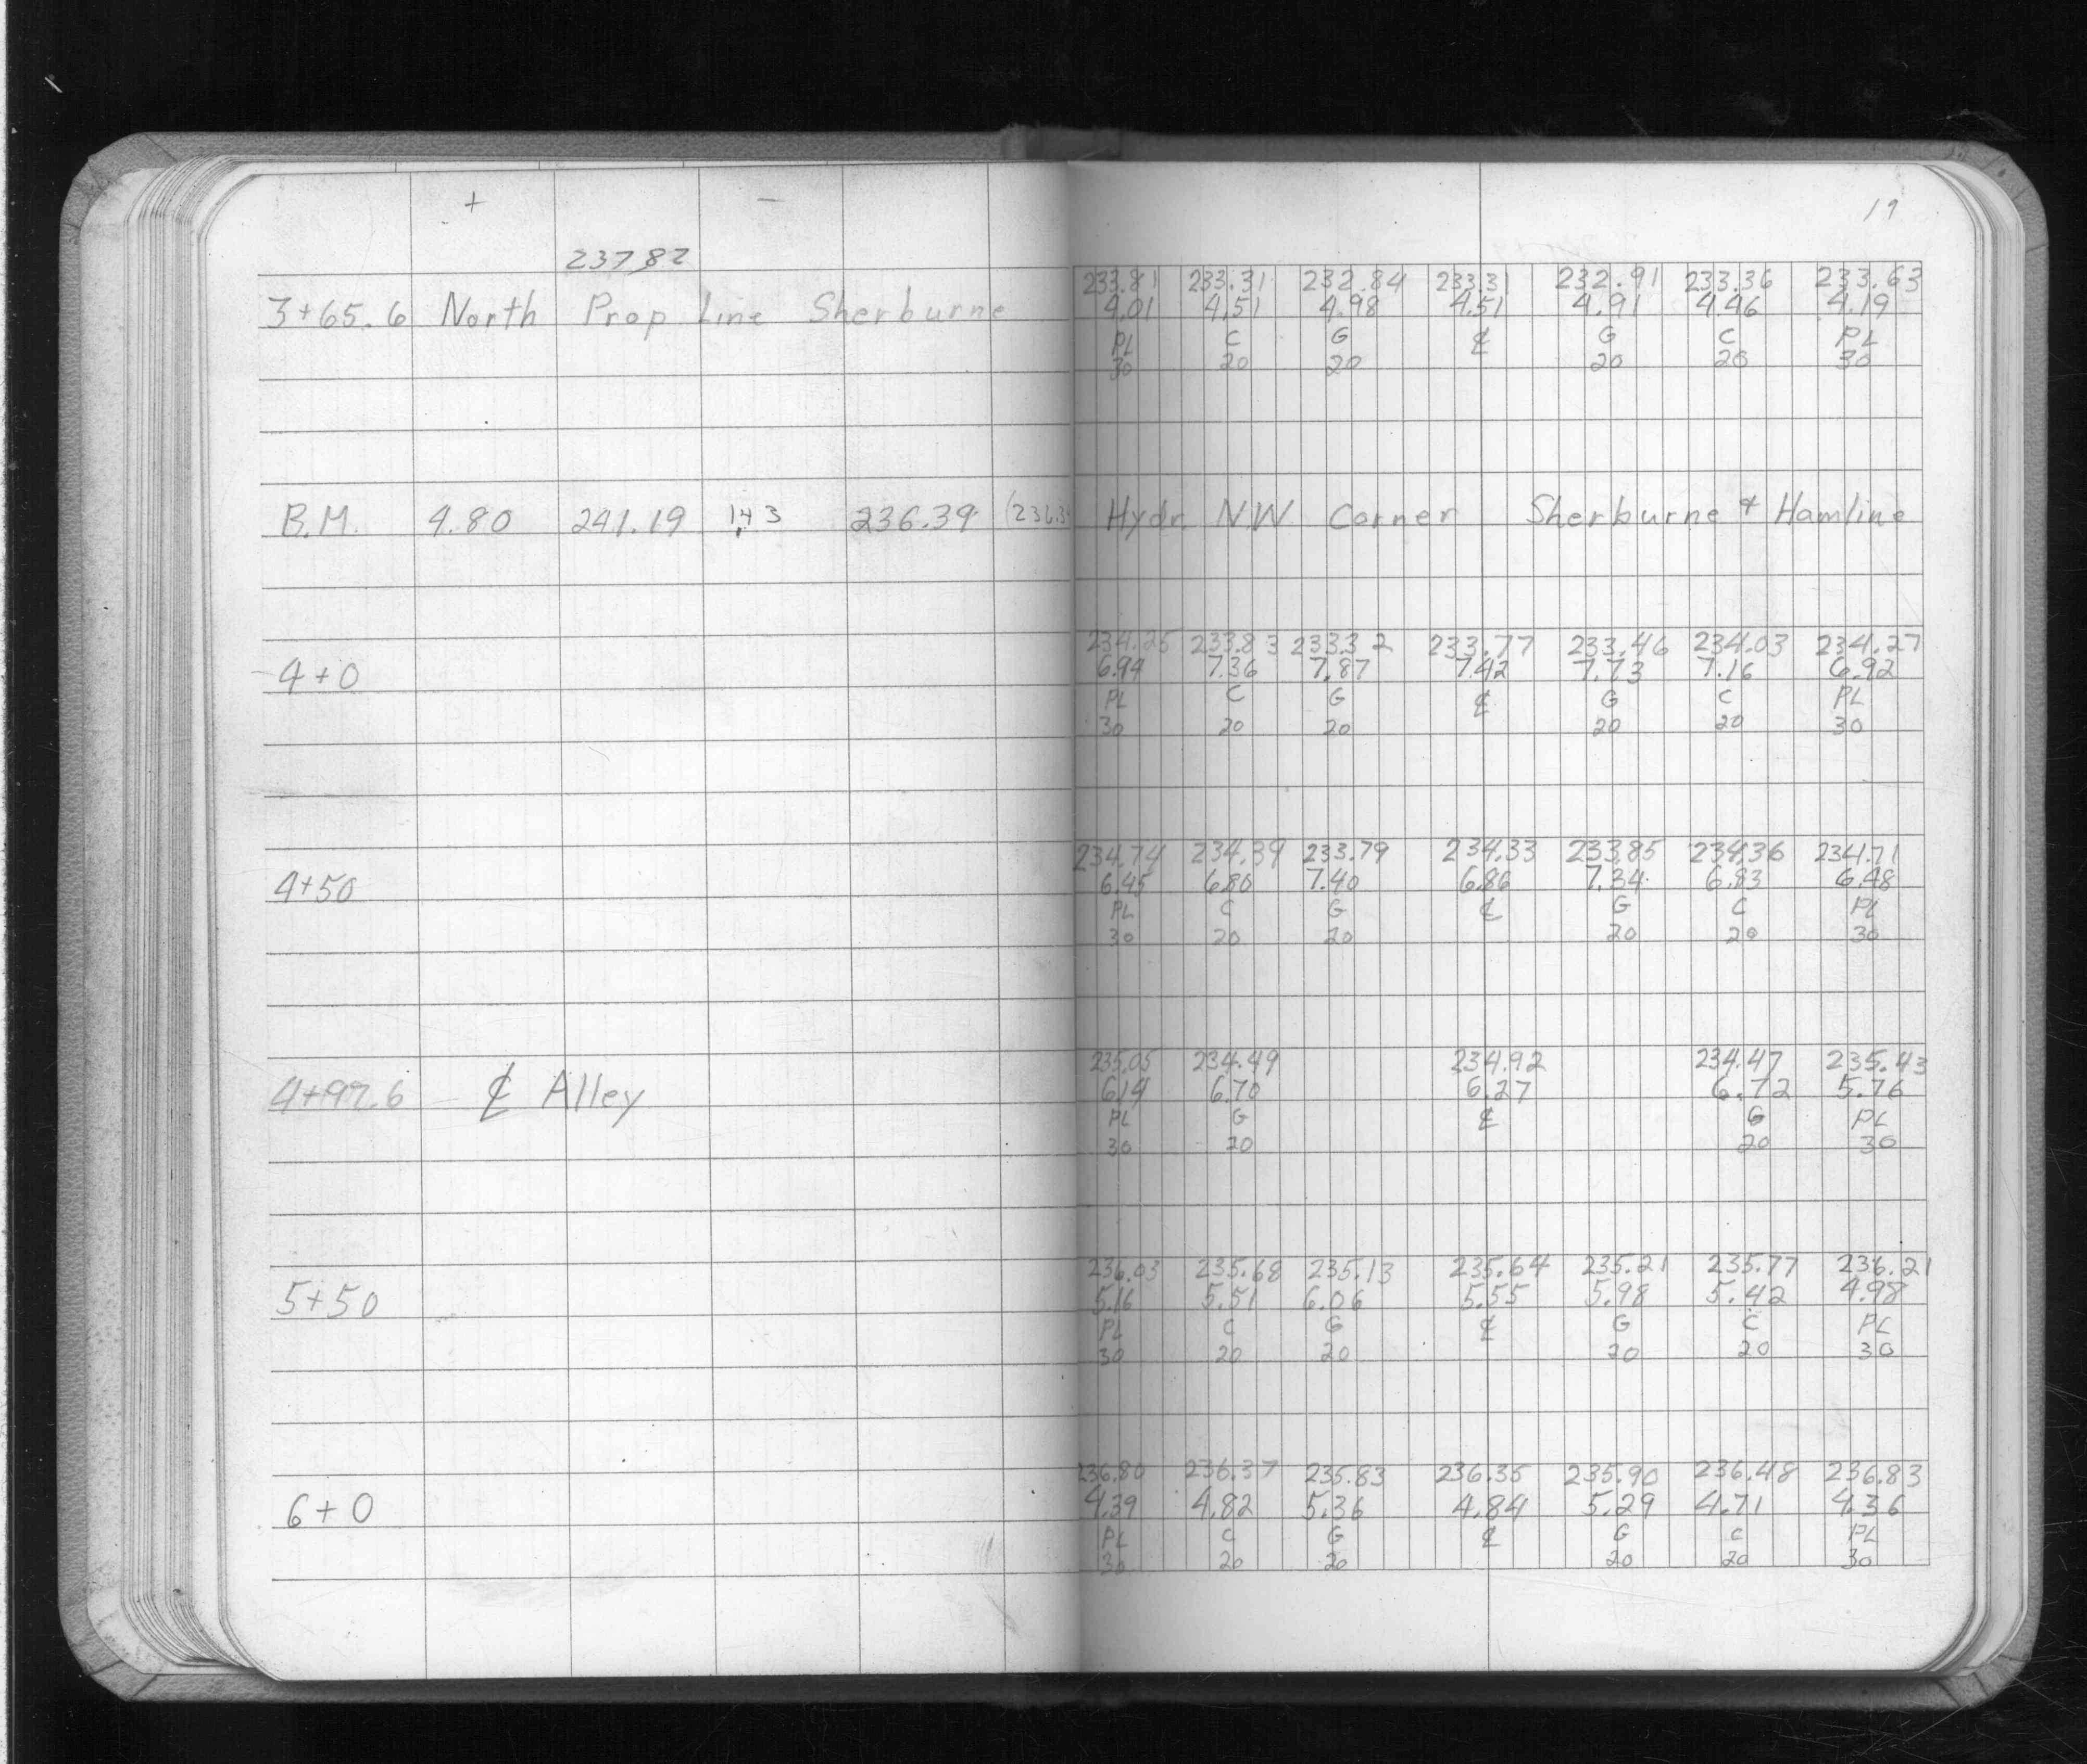 + −
237.82
3+65.6 North Prop Line Sherburne
B.M. 4.80 241.19 1.43 236.39
4+0
4+50
4+97.6 ℄ Alley
5+50
6+0
19
233.81 233.31 232.84 233.31 232.91 233.36 233.63
4.01 4.51 4.98 4.51 4.91 4.46 4.19
PL C G ℄ G C PL
30 20 20 20 20 30
Hydr NW Corner Sherburne & Hamline
234.25 233.83 233.32 233.77 233.46 234.03 234.27
6.94 7.36 7.87 7.42 7.73 7.16 6.92
PL C G ℄ G C PL
30 20 20 20 20 30
234.74 234.39 233.79 234.33 233.85 234.36 234.71
6.45 6.80 7.40 6.86 7.34 6.83 6.48
PL C G ℄ G C PL
30 20 20 20 20 30
235.05 234.49 234.92 234.47 235.43
6.14 6.70 6.27 6.72 5.76
PL G ℄ G PL
30 20 20 30
236.03 235.68 235.13 235.64 235.21 235.77 236.21
5.16 5.51 6.06 5.55 5.98 5.42 4.98
PL C G ℄ G C PL
30 20 20 20 20 30
236.80 236.37 235.83 236.35 235.90 236.48 236.83
4.39 4.82 5.36 4.84 5.29 4.71 4.36
PL C G ℄ G C PL
30 20 20 20 20 30